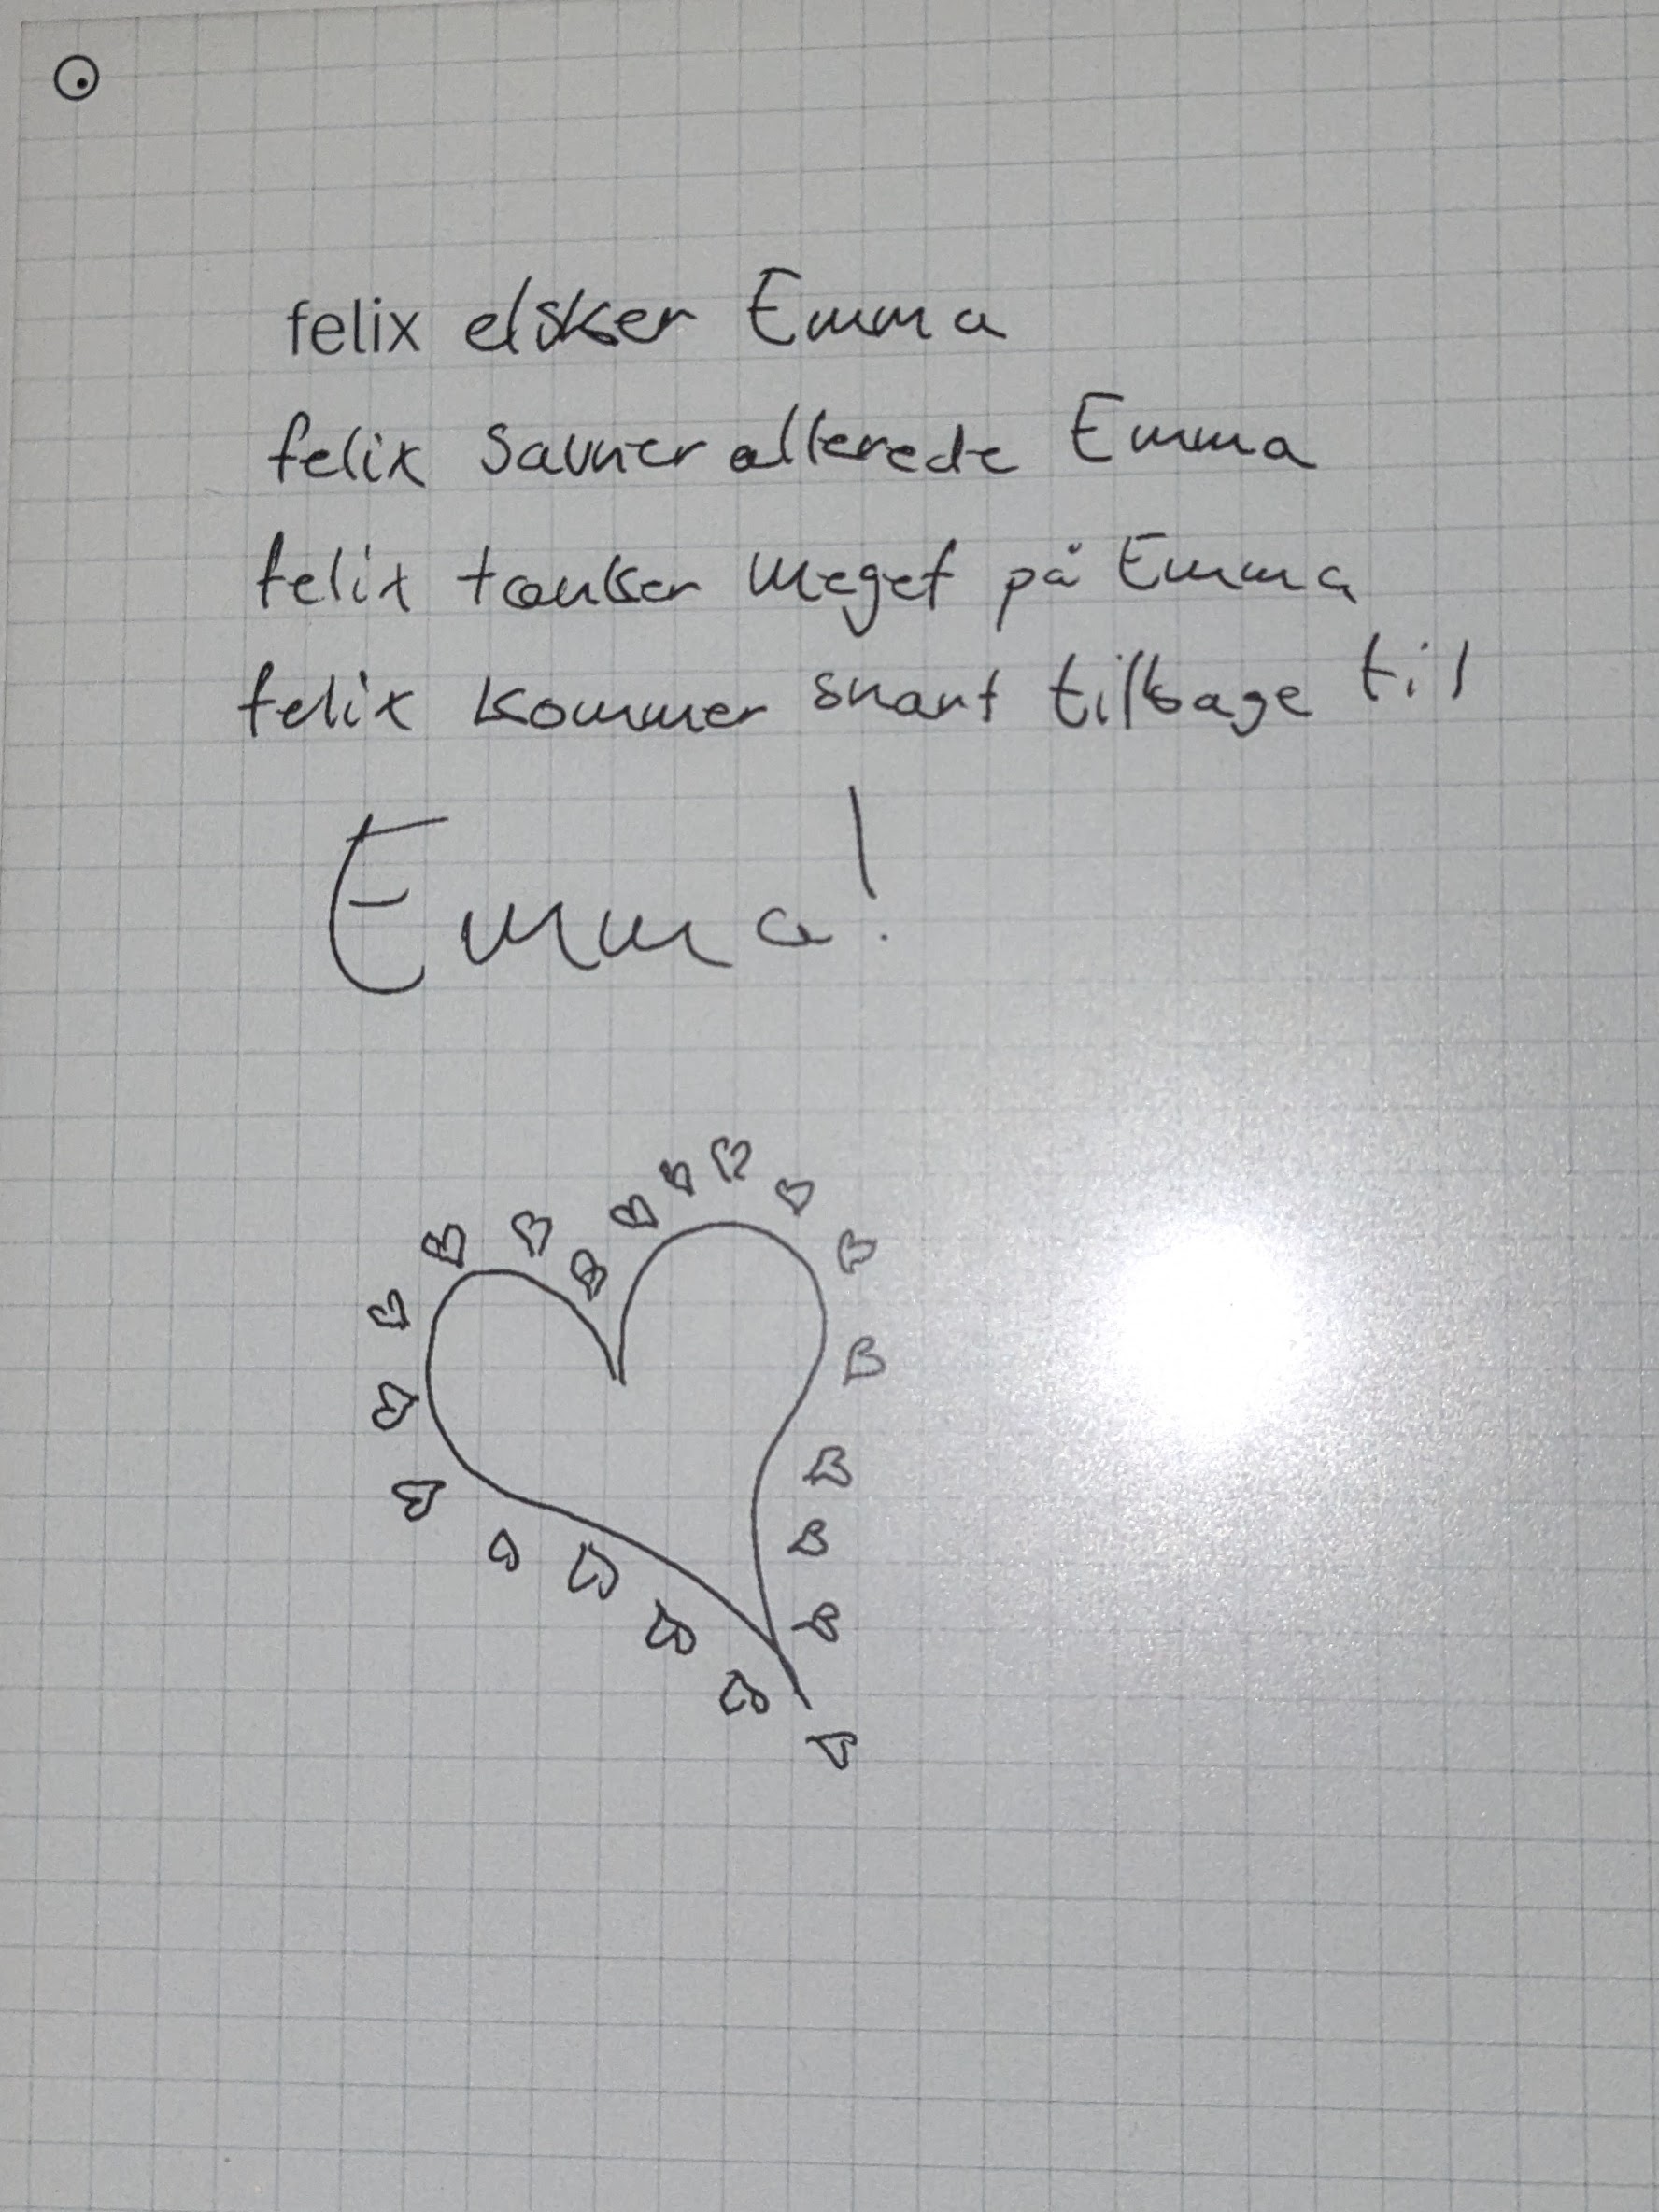 felix elsker Emma
felix savner allerede Emma
felix tænker meget på Emma
felix kommer snart tilbage til
Emma!